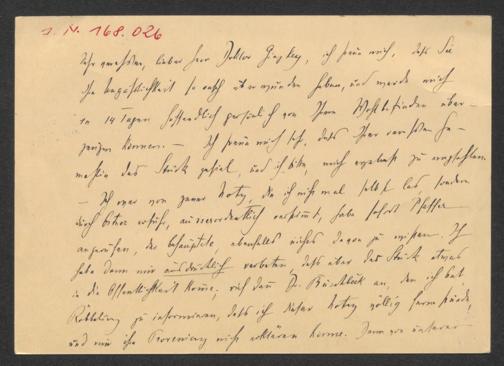 I. N. 168.026
Sehr verehrter, lieber Herr Doktor Ginzkey, ich freue mich, daß Sie
Ihre Unpäßlichkeit so rasch überwunden haben, und werde mich
in 14 Tagen hoffentlich persönlich von Ihrem Wohlbefinden über-
zeugen können. — Ich freue mich sehr, daß Ihrer verehrten Ge-
mahlin das Stück gefiel, und ich bitte, mich ergebenst zu empfehlen.
— Ich war von jener Notiz, die ich nicht mal selbst las, sondern
durch erfuhr, außerordentlich, habe sofort Pfeffer
angerufen, der behauptete, ebenfalls nichts davon zu wissen. Ich
habe denn mir ausdrücklich verbeten, daß über das Stück etwas
in die Öffentlichkeit komme, rief dann Dr. Buschbeck an, den ich bat,
Röbbeling zu informieren, daß ich dieser Notiz völlig fern stünde,
und mir ihre Provenienz nicht erklären könne. Denn von unserer